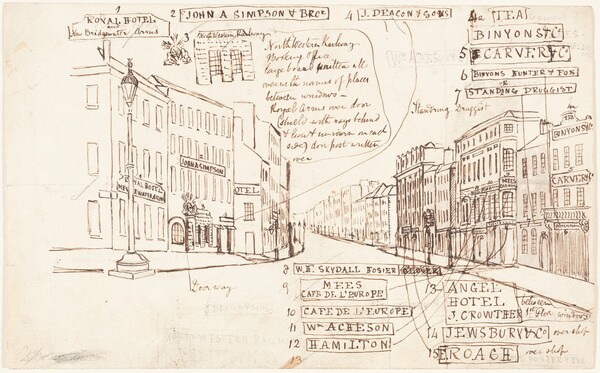 1
ROYAL HOTEL
New Bridgewater Arms
2 JOHN A SIMPSON & BROS
3
North Western Railway
North Western Railway
Booking Office
large board written all
over with names of places
between windows -
Royal Arms over door
(shield with rays behind
& lion & unicorn on each
side) door post written
over
4 J. DEACON & SONS
4a TEAS
BINYONS & Co
5 CARVER & Co
6 BINYONS HUNTER & FOX
7 STANDING DRUGGIST
Standring Druggist
ROYAL HOTEL
JOHN A SIMPSON
HOTEL
MEES
TEA
BINYONS
CARVER &
Doorway
8 W. E. SKYDALL HOSIER GLOVER
9 MEES
CAFE DE L'EUROPE
10 CAFE DE L'EUROPE
11 Wm ACHESON
12 HAMILTON
13
13 ANGEL
HOTEL
J. CROWTHER
between
1st floor windows
14 JEWSBURY & Co over shop
15 ROACH over shop